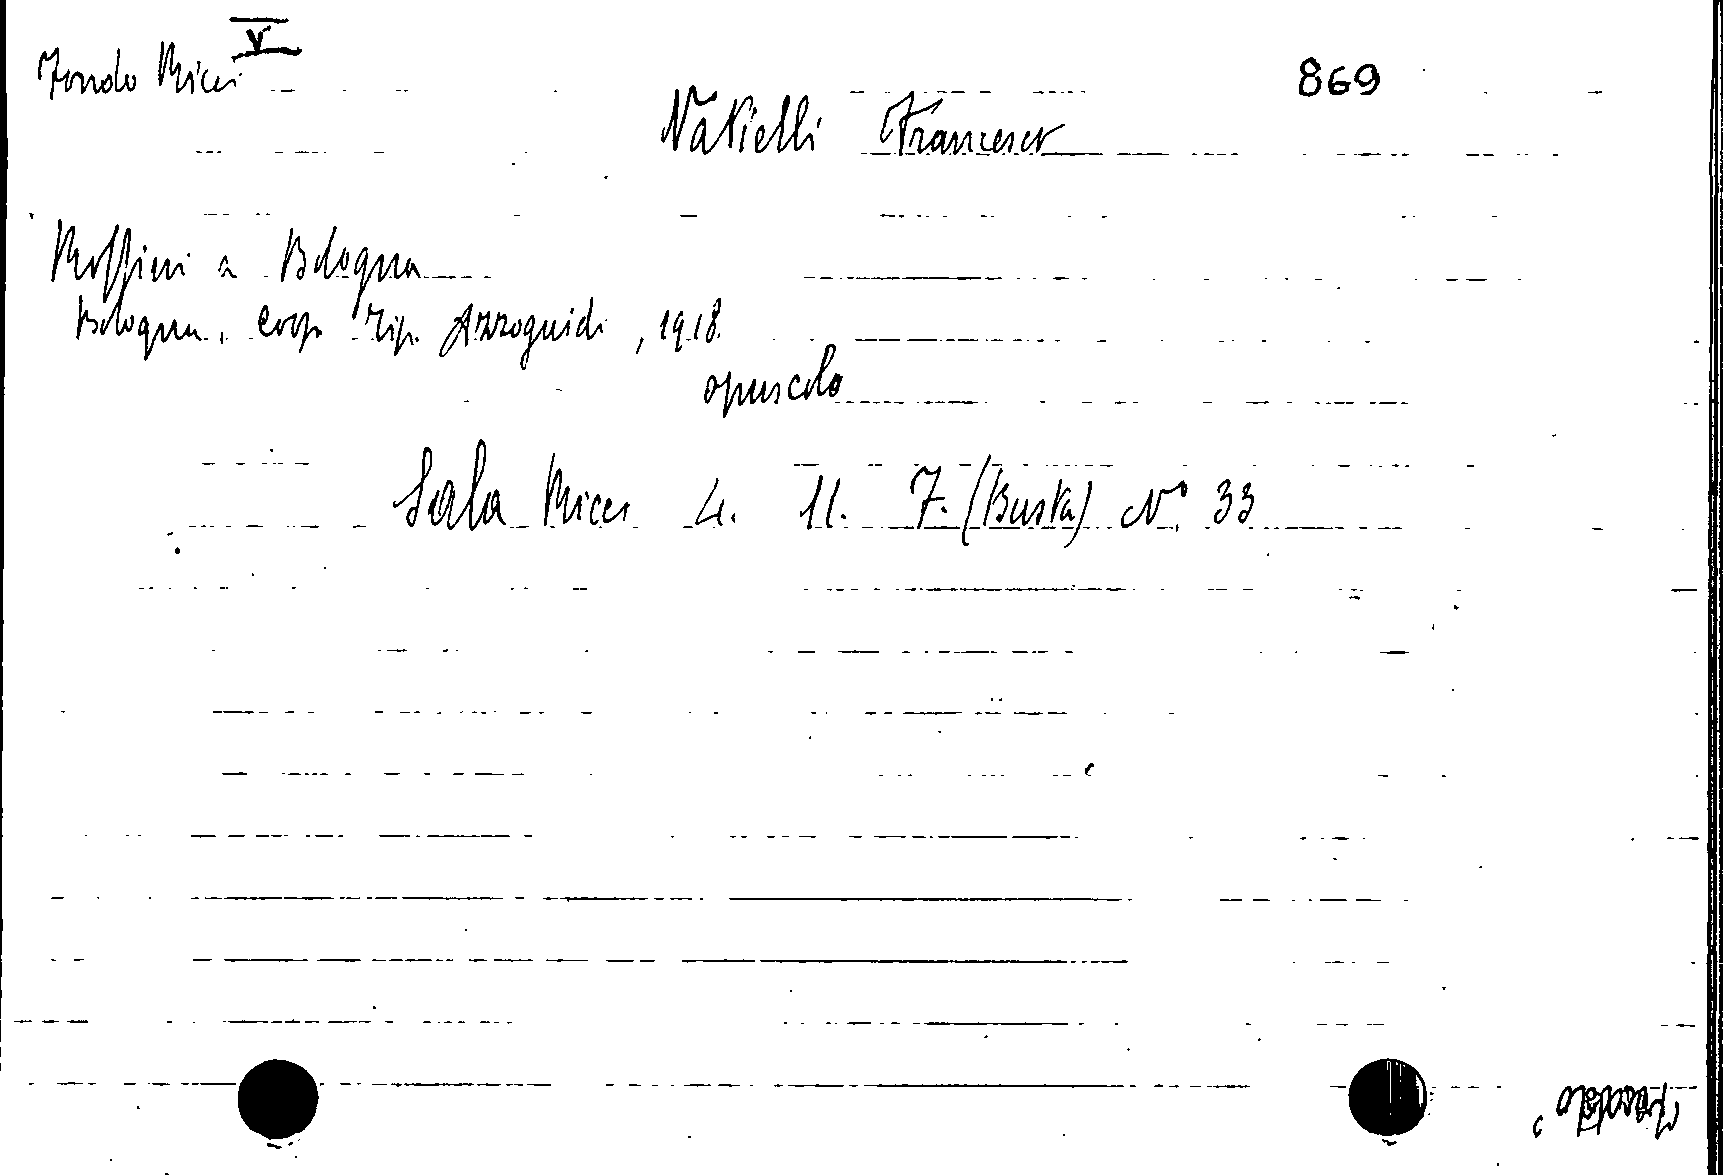 V
Fondo Ricci
869
Vatielli Francesco
Rossini a Bologna
Bologna, Coop. Tip. Azzoguidi, 1918
opuscolo
Sala Ricci 4. 11. 7. (Busta) N° 33